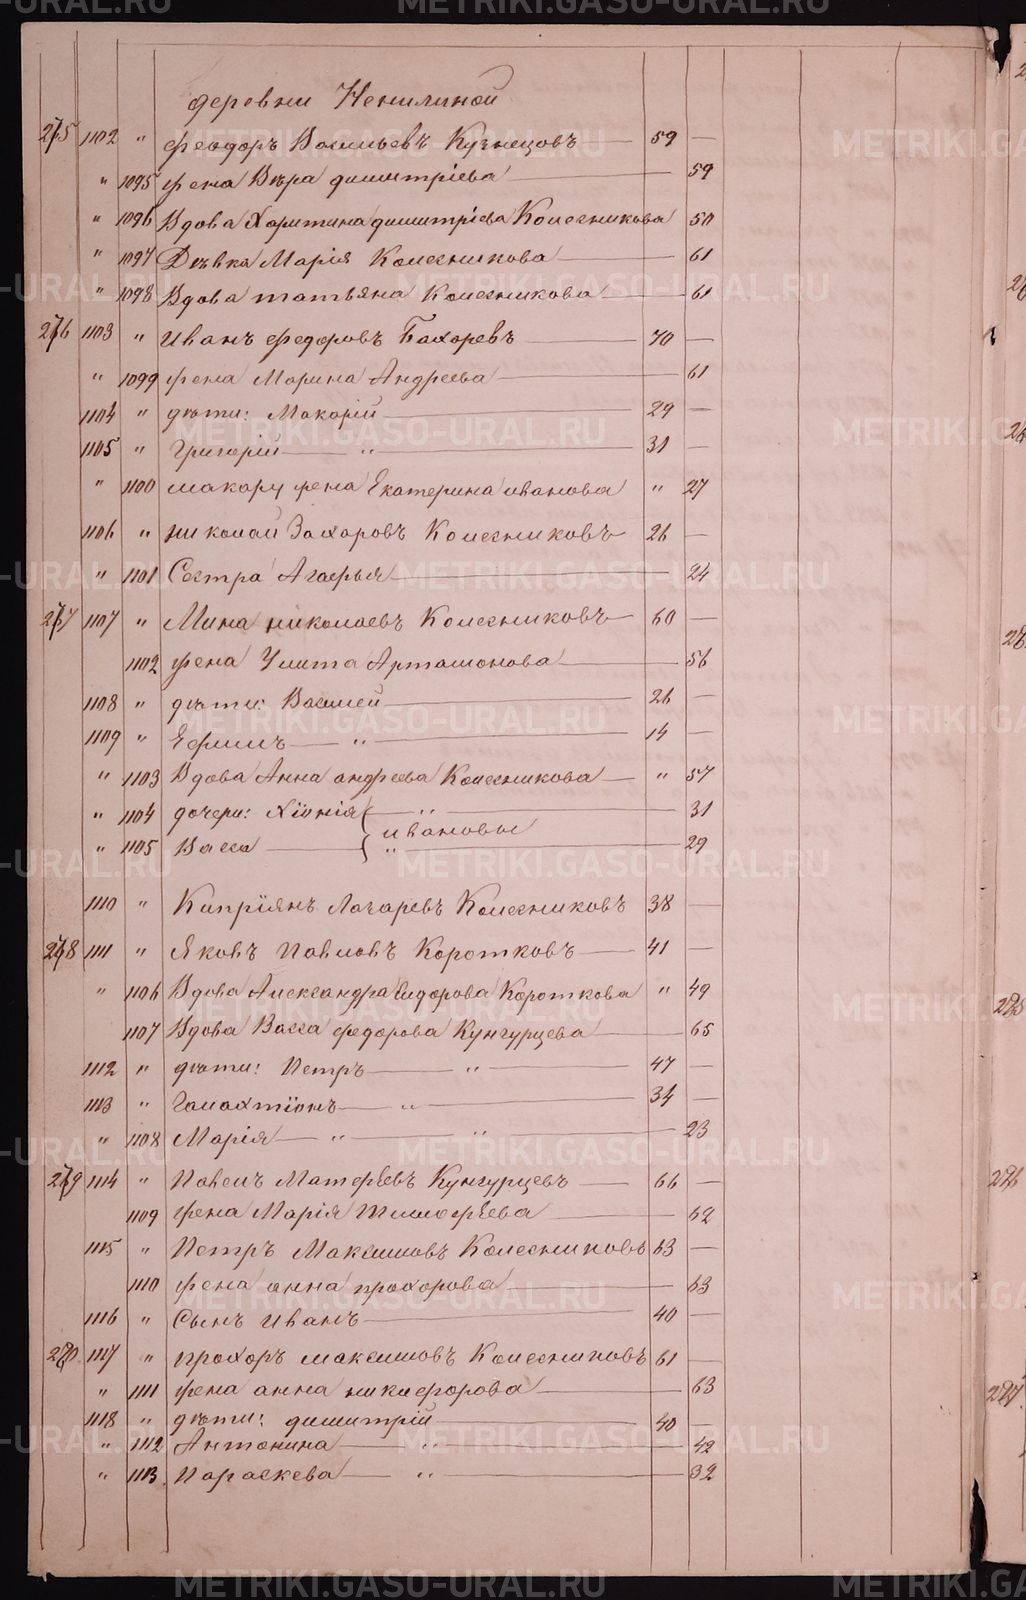 деревни Ненилиной
275 1102 " Феодоръ Васильевъ Кузнецовъ — 59 —
" 1095 жена Вѣра Димитріева — 59
" 1096 Вдова Харитина Димитріева Колесникова 50
" 1097 Дѣвка Марія Колесникова — 61
" 1098 Вдова Татьяна Колесникова — 61
276 1103 " Иванъ Федоровъ Бахоревъ — 70 —
" 1099 жена Марина Андреева — 61
1104 " дѣти: Макарій — 29 —
1105 " Григорій — " — 31 —
" 1100 Макару жена Екатерина Иванова " 27
1106 " Николай Захаровъ Колесниковъ 26 —
" 1101 Сестра Агафья — 24
277 1107 " Мина Николаевъ Колесниковъ — 60 —
1102 жена Улита Артамонова — 56
1108 " дѣти: Василей — 26 —
1109 " Ефимъ — " — 14 —
" 1103 Вдова Анна Андреева Колесникова — " 57
" 1104 дочери: Хіонія — " — 31
Ивановы
" 1105 Васса — " — 29
1110 " Капріянъ Лазаревъ Колесниковъ 38 —
278 1111 " Яковъ Павловъ Коротковъ — 41 —
" 1106 Вдова Александра Сидорова Короткова " 49
1107 Вдова Васса Федорова Кунгурцева — 65
1112 " дѣти: Петръ — " — 47 —
1113 " Галахтіонъ — " — 34 —
" 1108 Марія — " — " — 23
279 1114 " Павелъ Матфѣевъ Кунгурцевъ — 66 —
1109 жена Марія Тимофѣева — 62
1115 " Петръ Максимовъ Колесниковъ 63 —
1110 жена Анна Прохорова — 63
1116 " Сынъ Иванъ — 40 —
280 1117 " Прохоръ Максимовъ Колесниковъ 61 —
" 1111 жена Анна Никифорова — 63
1118 " дѣти: Димитрій — 40 —
" 1112 Антонина — " — 42
" 1113 Параскева — " — 32
METRIKI.GASO-URAL.RU